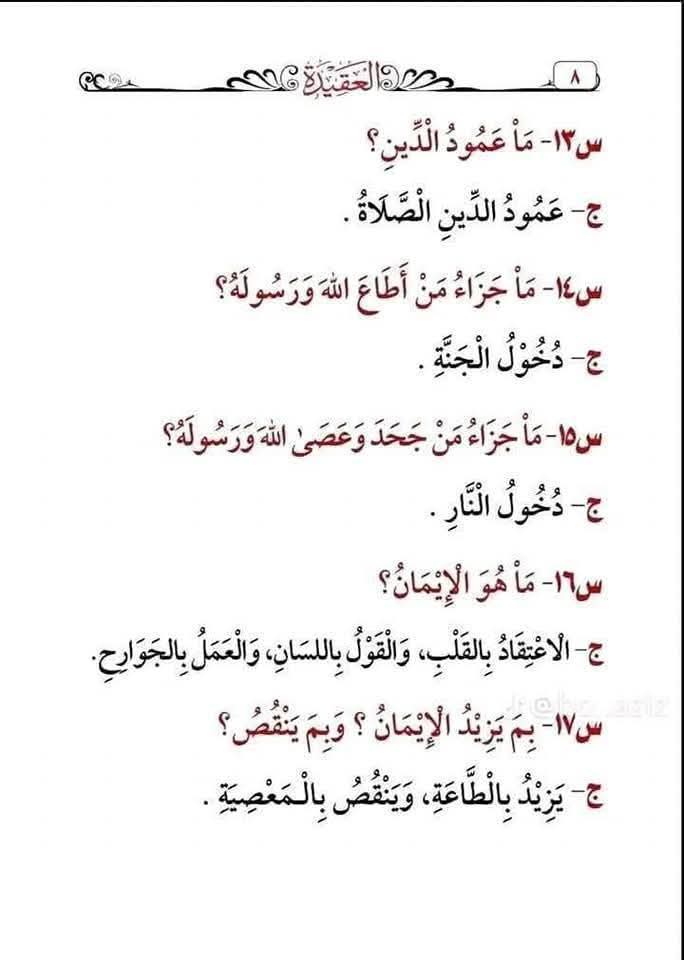 ٨
العقيدة
س١٣- مَاْ عَمُودُ الْدِّينِ؟
ج- عَمُودُ الدِّينِ الْصَّلَاةُ .
س١٤- مَاْ جَزَاءُ مَنْ أَطَاعَ اللهَ وَرَسُولَهُ؟
ج- دُخُوْلُ الْجَنَّةِ .
س١٥- مَاْ جَزَاءُ مَنْ جَحَدَ وَعَصَىٰ اللهَ وَرَسُولَهُ؟
ج- دُخُولُ الْنَّارِ .
س١٦- مَاْ هُوَ الْإِيْمَانُ؟
ج- الْاعْتِقَادُ بِالقَلْبِ، وَالْقَوْلُ بِاللسَانِ، وَالْعَمَلُ بِالجَوَارِحِ.
س١٧- بِمَ يَزِيْدُ الْإِيْمَانُ ؟ وَبِمَ يَنْقُصُ ؟
ج- يَزِيْدُ بِالْطَّاعَةِ، وَيَنْقُصُ بِالْمَعْصِيَةِ .